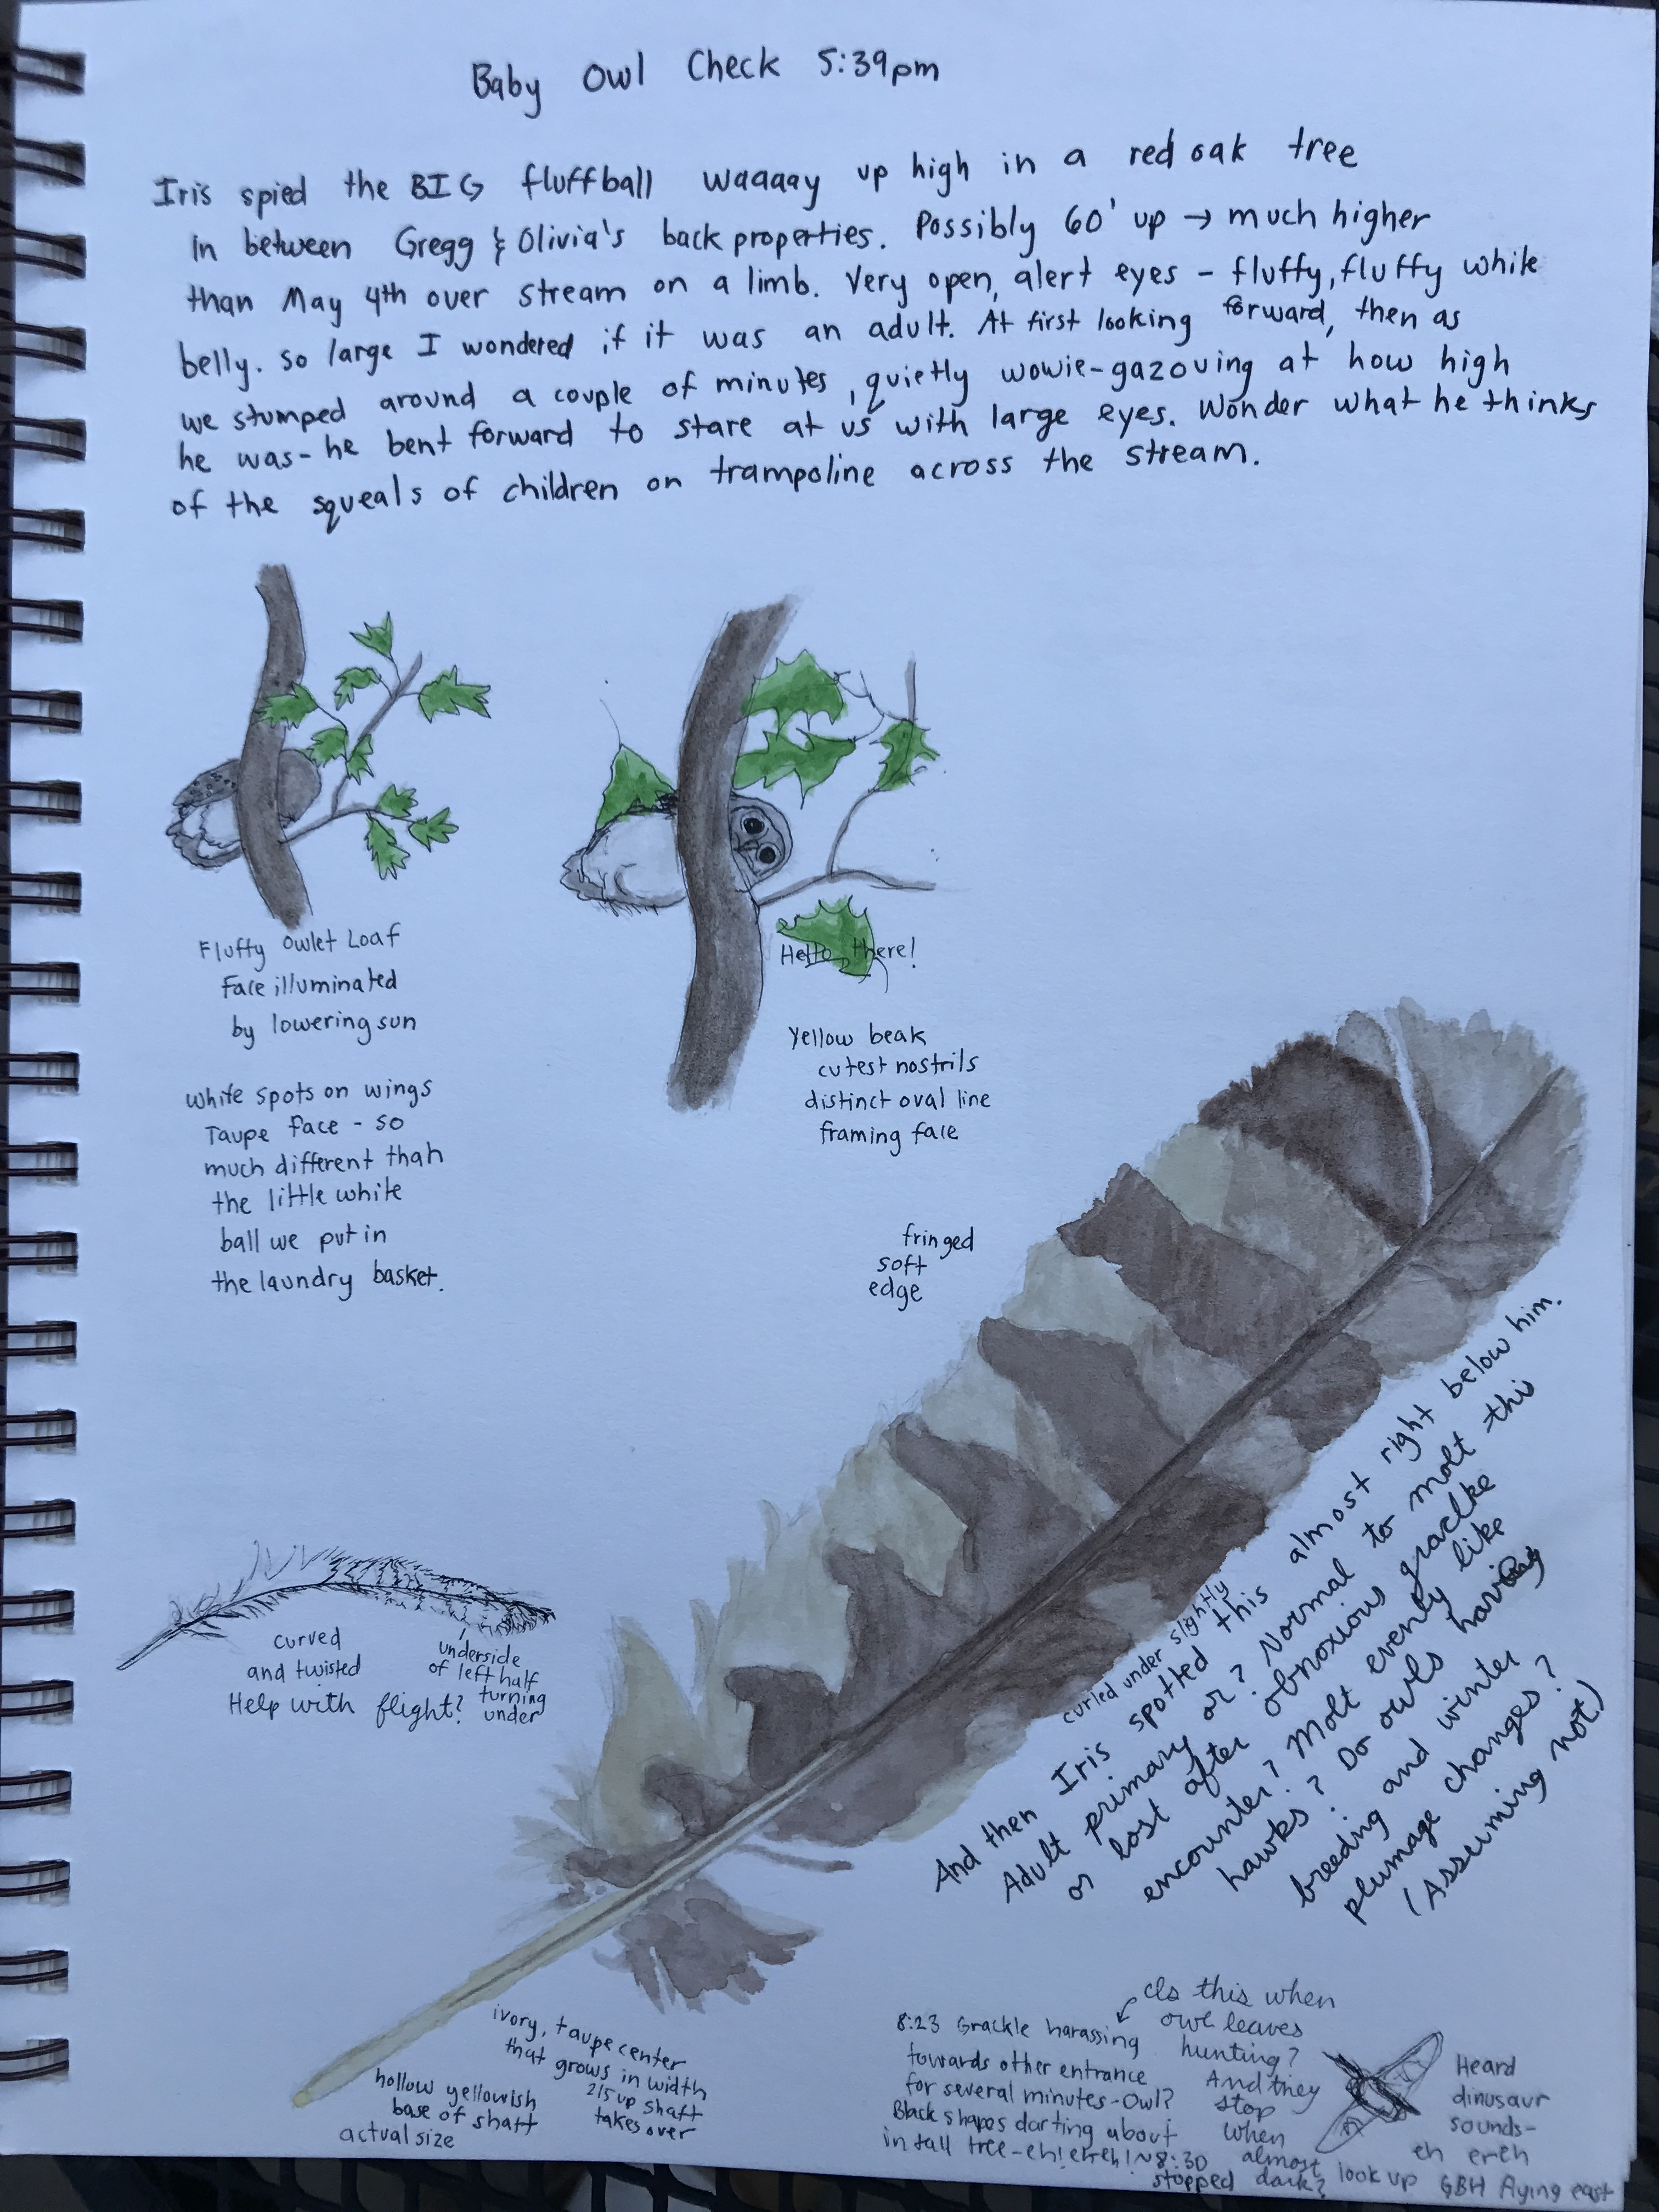 Baby Owl Check 5:39pm
Iris spied the BIG fluffball waaaay up high in a red oak tree
In between Gregg & Olivia's back properties. Possibly 60' up → much higher
than May 4th over stream on a limb. Very open, alert eyes - fluffy, fluffy white
belly. So large I wondered if it was an adult. At first looking forward, then as
we stumped around a couple of minutes, quietly wowie-gazouving at how high
he was - he bent forward to stare at us with large eyes. Wonder what he thinks
of the squeals of children on trampoline across the stream.
Fluffy Owlet Loaf
Face illuminated
by lowering sun
White spots on wings
Taupe face - so
much different than
the little white
ball we put in
the laundry basket.
Hello there!
Yellow beak
cutest nostrils
distinct oval line
framing face
fringed
soft
edge
curved
and twisted
Help with flight?
underside
of left half
turning
under
curled under slightly
And then Iris spotted this almost right below him.
Adult primary or? Normal to molt this
or lost after obnoxious graclke
encounter? Molt evenly like
hawks? Do owls having
breeding and winter
plumage changes?
(Assuming not)
ivory, taupe center
that grows in width
2/5 up shaft
takes over
hollow yellowish
base of shaft
actual size
8:23 Grackle harassing
towards other entrance
for several minutes - Owl?
Black shapes darting about
in tall tree - eh! ehreh! ~8:30
stopped
Is this when
owl leaves
hunting?
And they
stop
when
almost
dark?
Heard
dinosaur
sounds-
eh ereh
look up GBH flying east